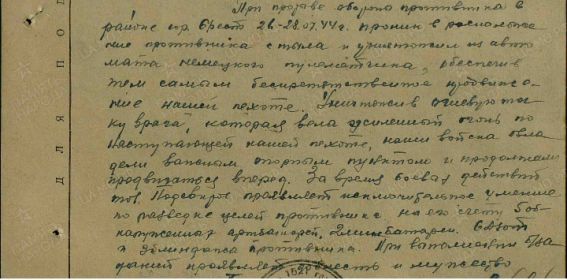 При прорыве обороны противника в
районе гор. Брест 26-28.07.44 г. проник в расположе-
ние противника с тыла и уничтожил из авто
мата немецкого пулеметчика, обеспечив
тем самым беспрепятственное продвиже-
ние нашей пехоте. Уничтожив огневую то
ку врага, которая вела усиленный огонь по
наступающей нашей пехоте, наши войска овла
дели важным опорным пунктом и продолжали
продвигаться вперед. За время боевых действий
тов. проявляет исключительное умение
по разведке целей противника на его счету 5 об-
наруженных артбатарей, 2 минбатареи, 6 Дзот
и противника. При выполнении б/за
даний проявляет и мужество
ДЛЯ ПОД